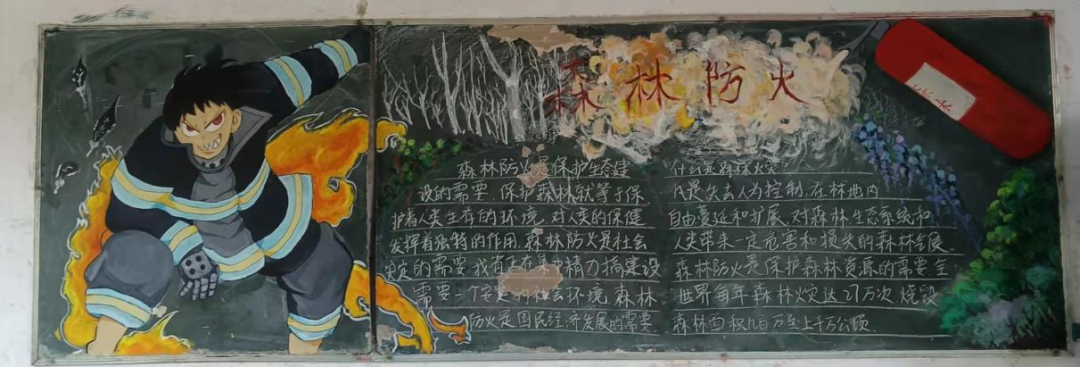 森林防火
灭火
森林防火是保护生态建
设的需要.保护森林就等于保
护着人类生存的环境.对人类的保健
发挥着独特的作用.森林防火是社会
的需要.我省正在集中精力搞建设
需要一个安定的社会环境.森林
防火是国民经济发展的需要
什么是森林火灾
凡是失去人为控制.在林地内
自由蔓延和扩展.对森林生态系统和
人类带来一定危害和损失的森林
森林防火是保护森林资源的需要.全
世界每年森林火灾达27万次.烧毁
森林面积几百万至上千万公顷.